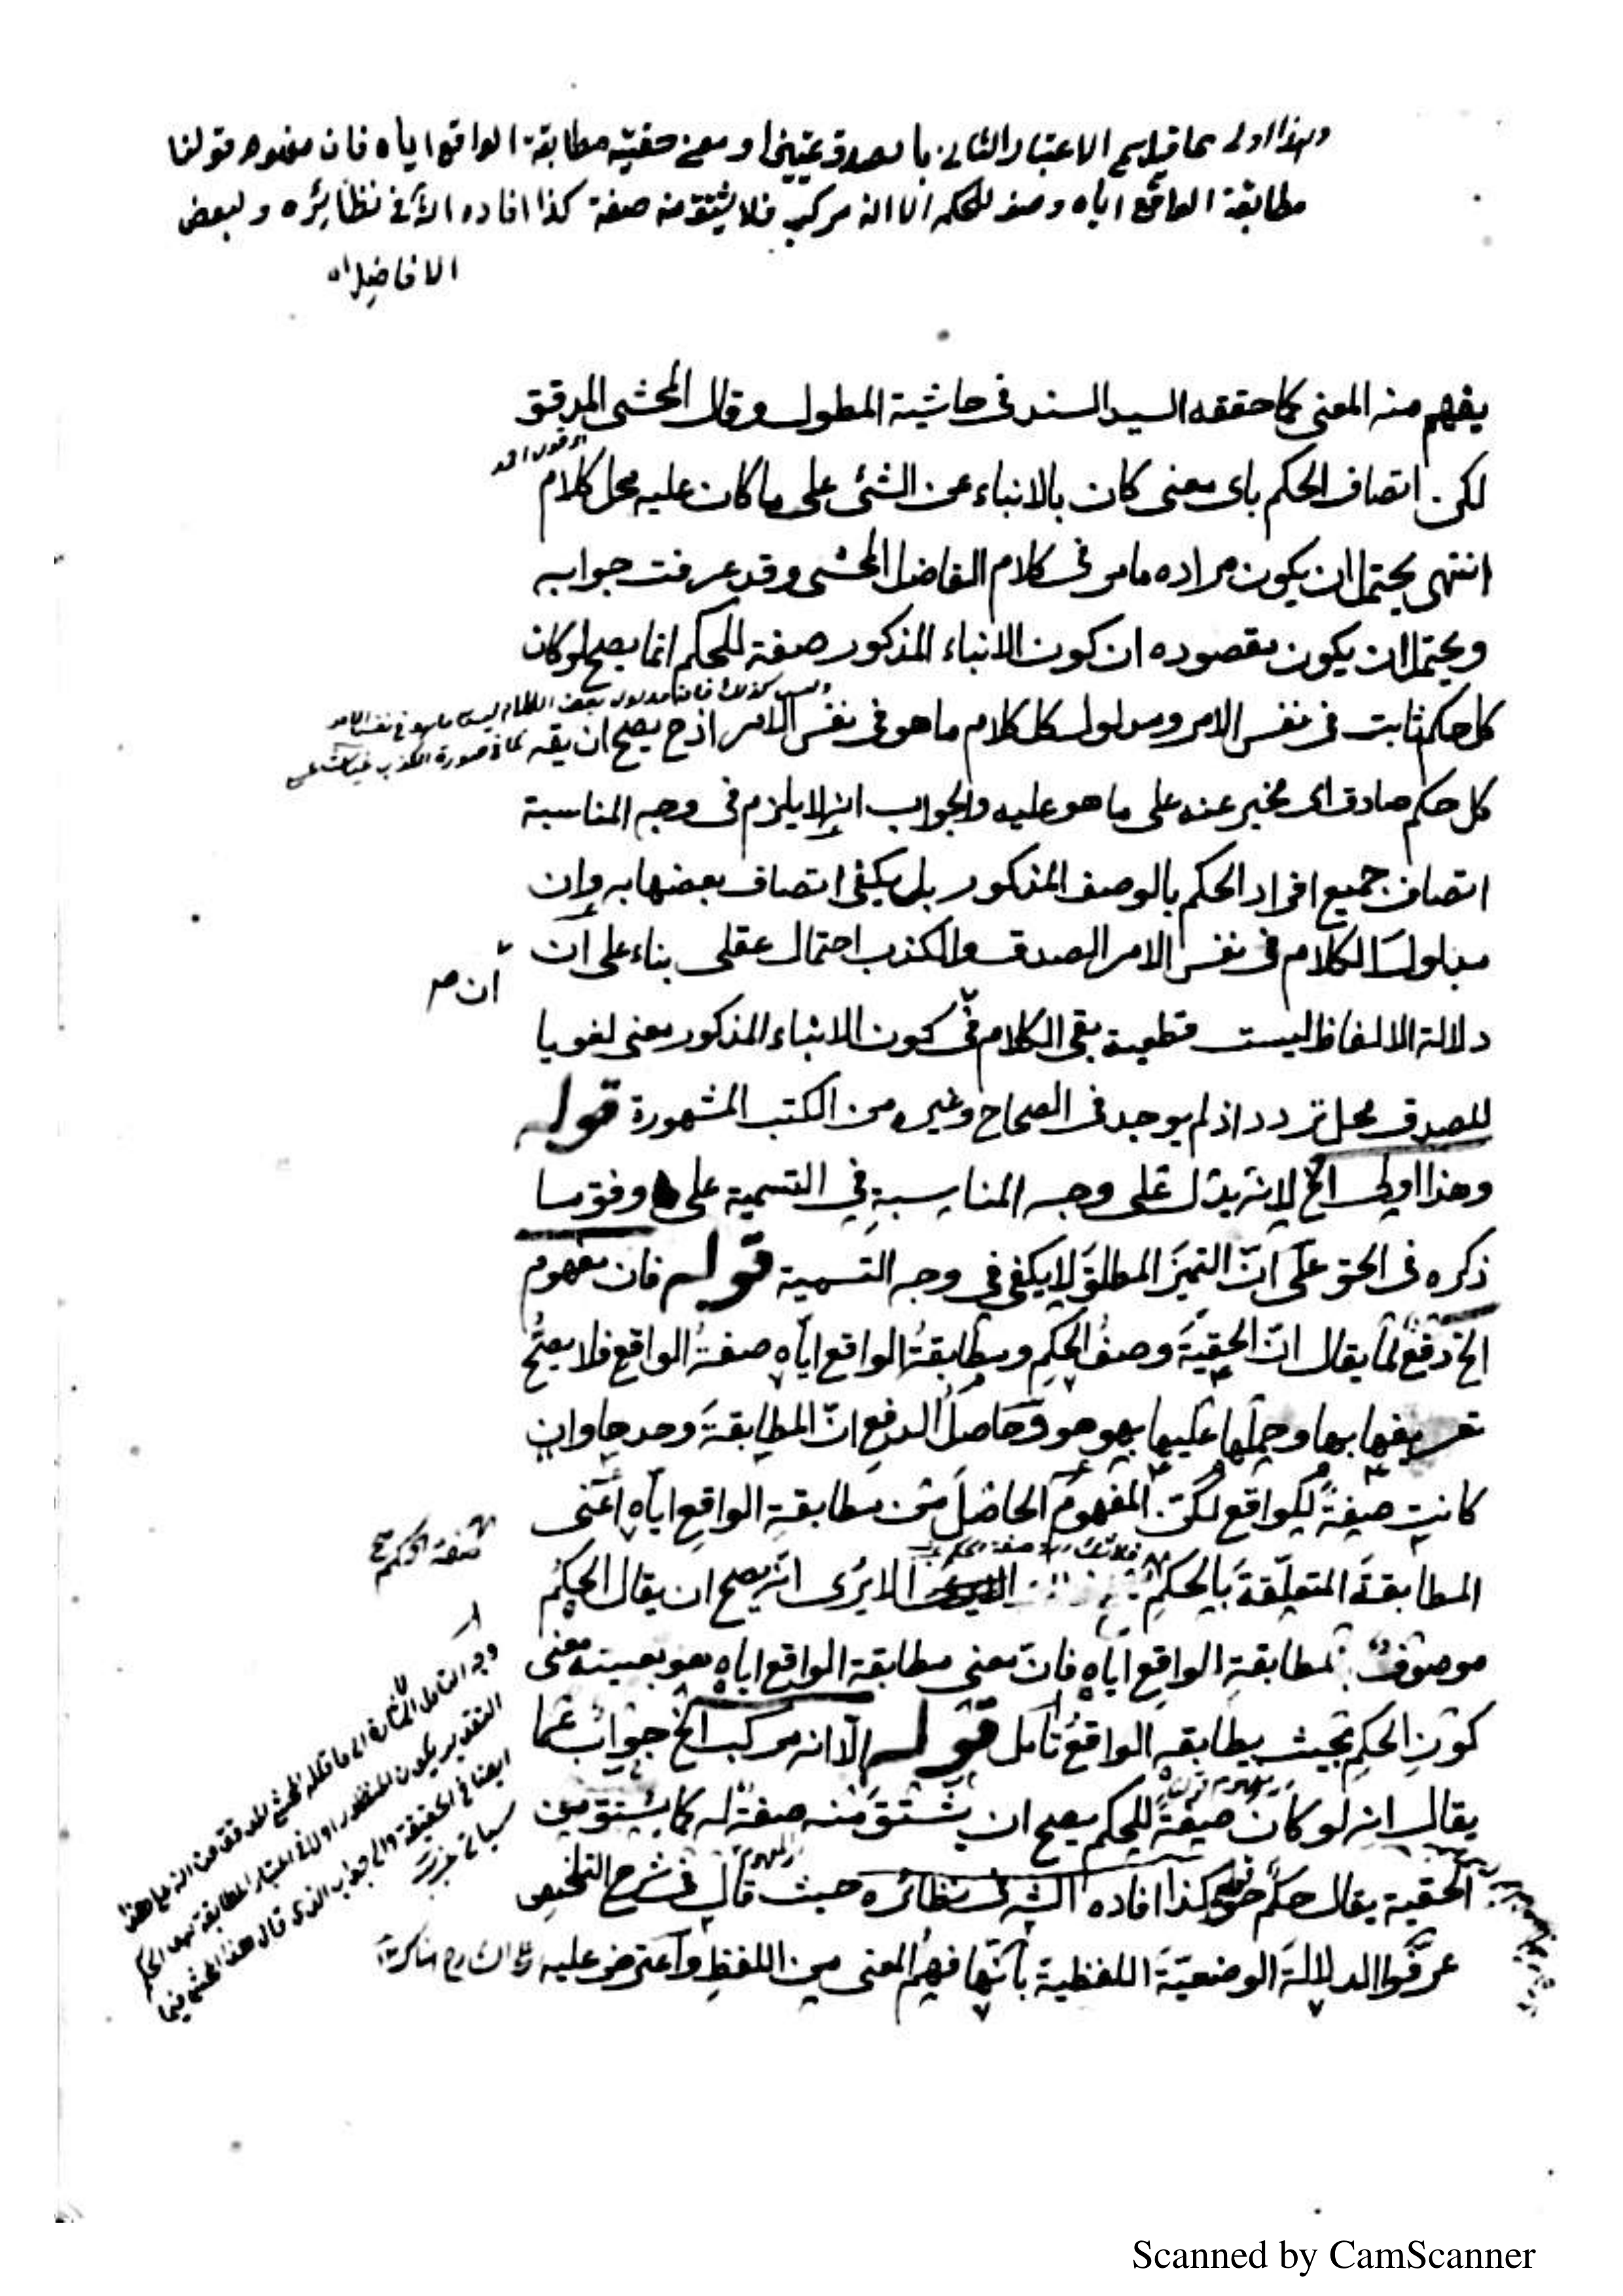 وهذا اولى مما قيل يسمى الاعتبار الثانى بالصدق تمييزا ومعنى حقيته مطابقة الواقع اياه فان مفهوم قولنا
مطابقة الواقع اياه وصف للحكم الا انه مركب فلا يشتق منه صفة كذا افاده الش فى نظائره ولبعض
الافاضل اه
يفهم منه المعنى كما حققه السيد السند فى حاشية المطول وقال المحشى المدقق
لكن اتصاف الحكم باى معنى كان بالانباء عن الشئ على ما كان عليه محل كلام
انتهى يحتمل ان يكون مراده ما مر فى كلام الفاضل المحشى وقد عرفت جوابه
ويحتمل ان يكون مقصوده ان كون الانباء المذكور صفة للحكم انما يصح لو كان
وليس كذلك فان مدلول بعض الكلام ليس ما هو فى نفس الامر
كل حكم ثابت فى نفس الامر ومدلول كل كلام ما هو فى نفس الامر اذ ح يصح ان يقه
كما فى صورة الكذب
كل حكم صادق اى مخبر عنه على ما هو عليه والجواب انه لا يلزم فى وجه المناسبة
اتصاف جميع افراد الحكم بالوصف المذكور بل يكفى اتصاف بعضها به وان
مدلول الكلام فى نفس الامر الصدق والكذب احتمال عقلى بناء على ان
ان صر
دلالة الالفاظ ليست قطعية بقى الكلام فى كون الانباء المذكور معنى لغويا
للصدق محل تردد اذ لم يوجد فى الصحاح وغيره من الكتب المشهورة قوله
وهذا اولى الخ لانه يدل على وجه المناسبة فى التسمية على وفق ما
ذكره فى الحق على انّ التميز المطلق لا يكفى فى وجه التسمية قوله فان مفهوم
الخ دفع لما يقال انّ الحقيّة وصف الحكم ومطابقة الواقع ايّاه صفة الواقع فلا يصحّ
تعريفها بها وحملها عليها بهو هو وحاصل الدفع انّ المطابقة وحدها وان
كانت صفةً للواقع لكنّ المفهوم الحاصل من مطابقة الواقع ايّاه اعنى
صفة الحكم صح
المطابقة المتعلّقة بالحكم الا يرى انّه يصح ان يقال الحكم
موصوف بمطابقة الواقع ايّاه فانّ معنى مطابقة الواقع اياه هو بعينه معنى
كون الحكم بحيث يطابقه الواقع تأمل قوله الّا انه مركب الخ جواب عما
يقال انه لو كان صفةً للحكم يصح ان يشتقّ منه صفة له كما يشتق من
الحقية يقال حكم حق قوله كذا افاده الشه فى نظائره حيث قال فى شرح التلخيص
عرّفوا الدلالة الوضعيّة اللفظية بانّها فهم المعنى من اللفظ واعترض عليه
وجه التأمل اشارة الى ما قاله المحشى المدقق من انه على هذا
التقدير يكون المنظور اولا فى اعتبار المطابقة هو الحكم
ايضا فى الحقيقة والجواب الذى قال هذا المحشى فيما
سياتى
Scanned by CamScanner